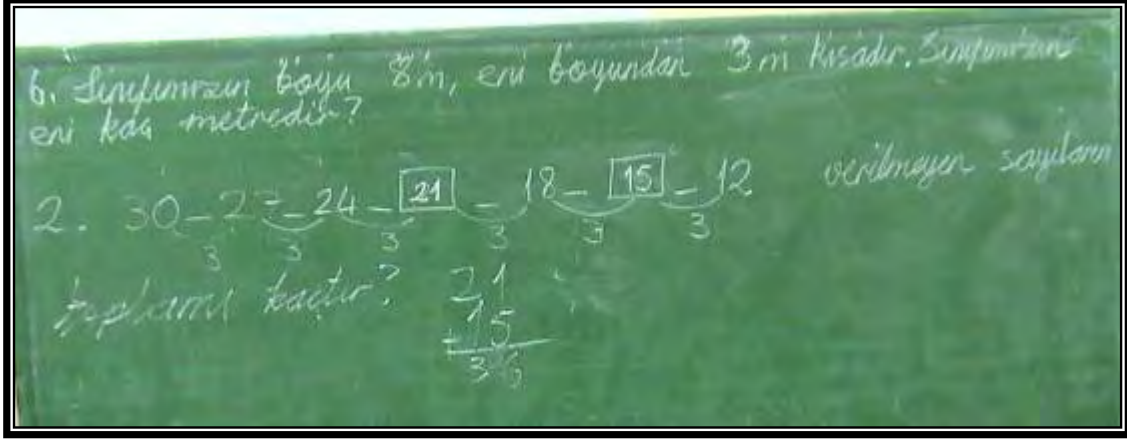 6. Sınıfımızın boyu 8m, eni boyundan 3m kısadır. Sınıfımızın
eni kaç metredir?
2. 30-27-24-21-18-15-12 verilmeyen sayıların
3 3 3 3 3 3
toplamı kaçtır?
21
+15
36